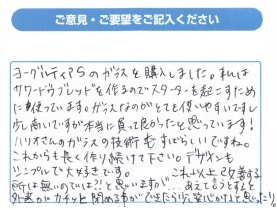 ご意見・ご要望をご記入ください
ヨーグルティアSのガラスを購入しました。私は
サワードウブレッドを作るのでスターターを起こすため
に使っています。ガラスなのがとても使いやすいです し
少し高いですが本当に買って良かったと思っています!
ハリオさんのガラスの技術もすばらしいですね。
これからも長く作り続けて下さい。デザインも
シンプルで大好きです。 これ以上改善する
所は無いのでは?!と思いますが……あえて言うとすると
外蓋がカチッと閉める事ができたら少し安心かなと思ったり